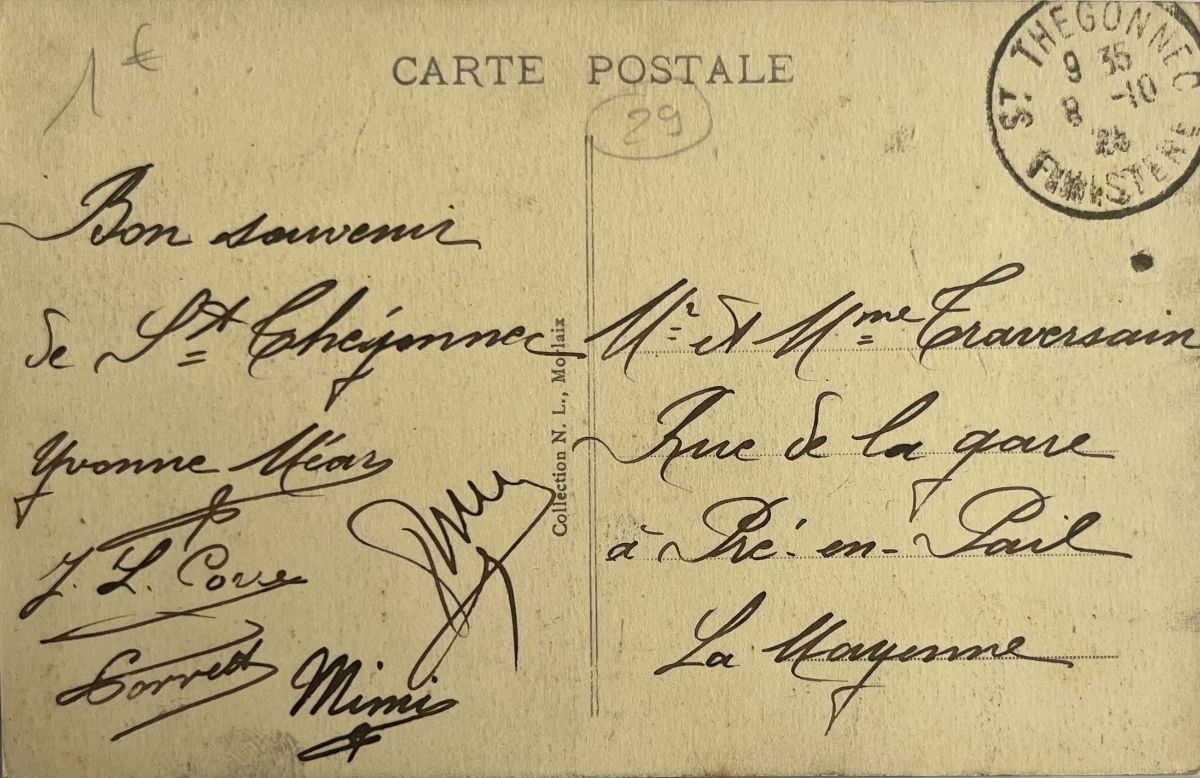 1 €
CARTE POSTALE
29
ST THEGONNEC
9 35
8 -10
FINISTERE
Bon souvenir
de St Thégonnec
Yvonne Méar
J. L. Corre
Mimi
Collection N. L., Morlaix
Mr et Mme Traversain
Rue de la gare
à Pré-en-Pail
La Mayenne